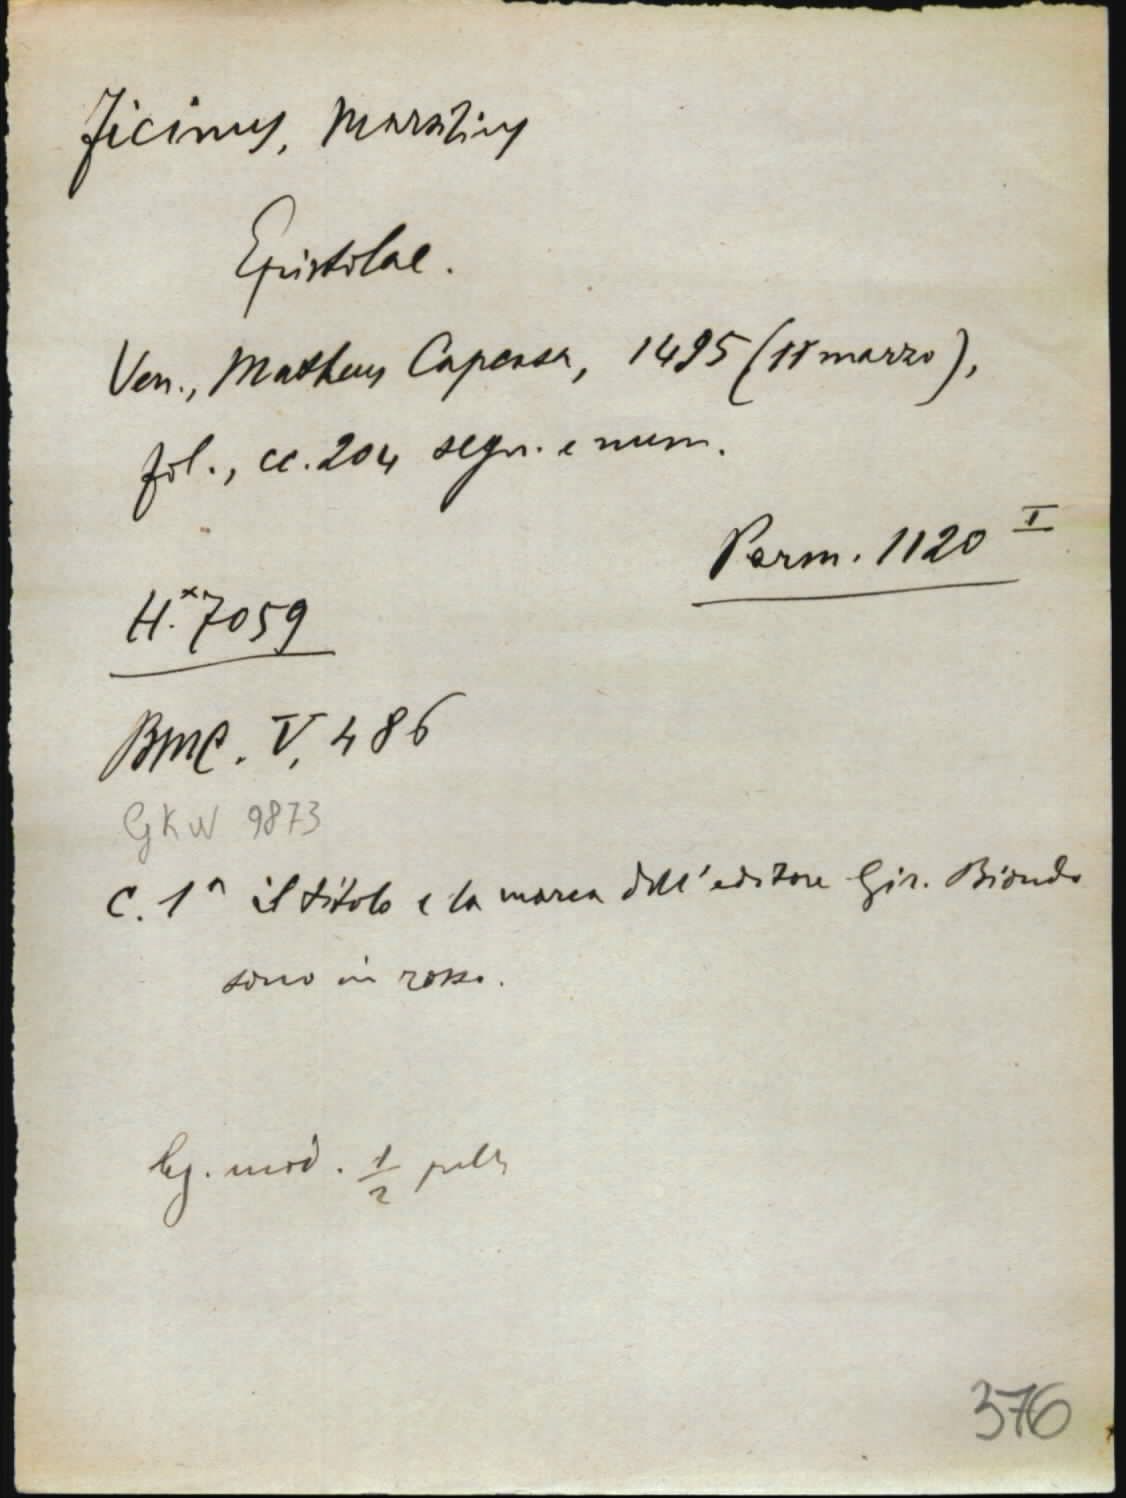 Ficinus, Marsilius
Epistolae.
Ven., Matheus Capcasa, 1495 (11 marzo),
fol., cc. 204 segn. e num.
Parm. 1120 I
H.* 7059
BMC. V, 486
GKW 9873
C. 1ª il titolo e la marca dell'editore Gir. Biondo
sono in rosso.
leg. mod. 1/2 pelle
376